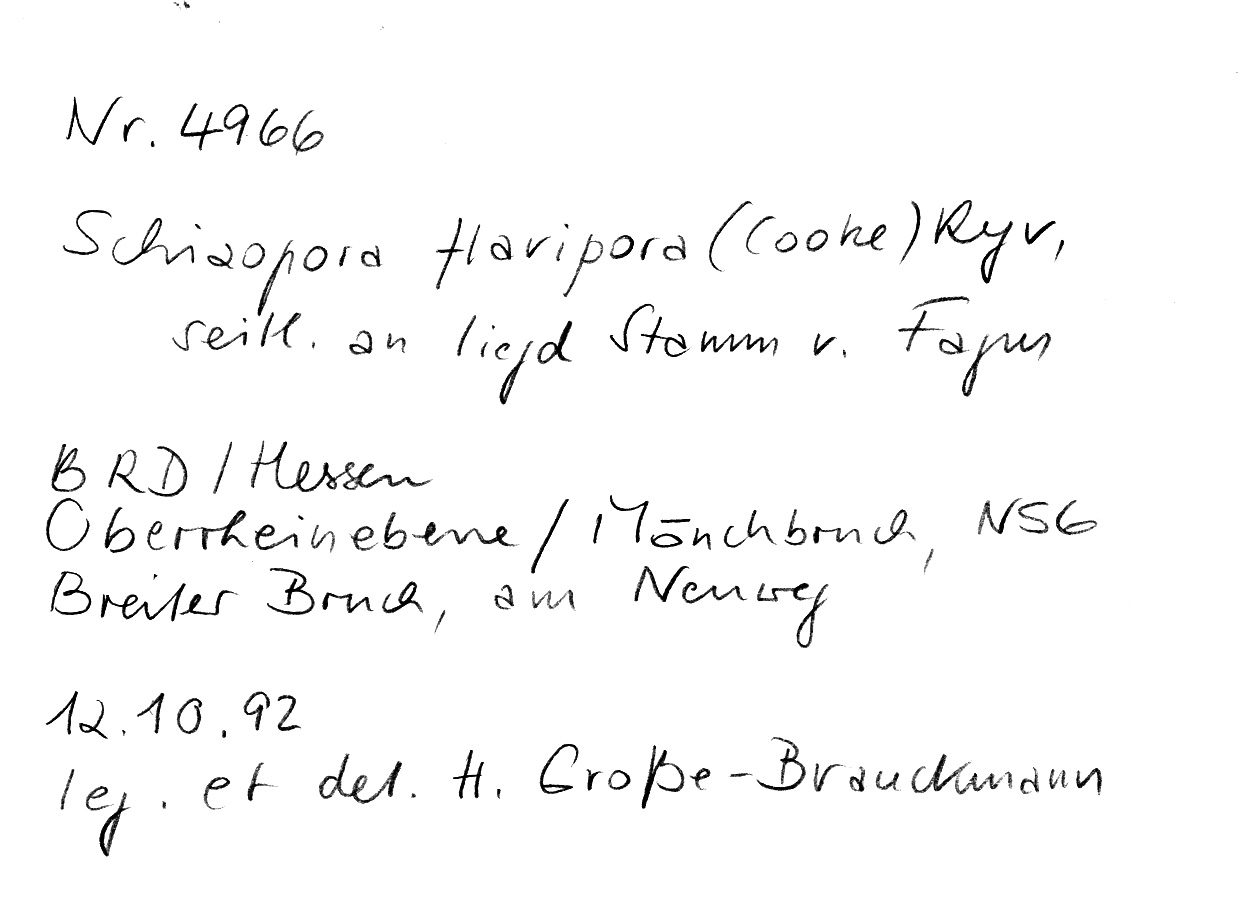 Nr. 4966
Schizopora flavipora (Cooke) Ryv.
seitl. an liegd Stamm v. Fagus
BRD / Hessen
Oberrheinebene / Mönchbruch, NSG
Breiter Bruch, am Neuweg
12.10.92
leg. et det. H. Große-Brauckmann